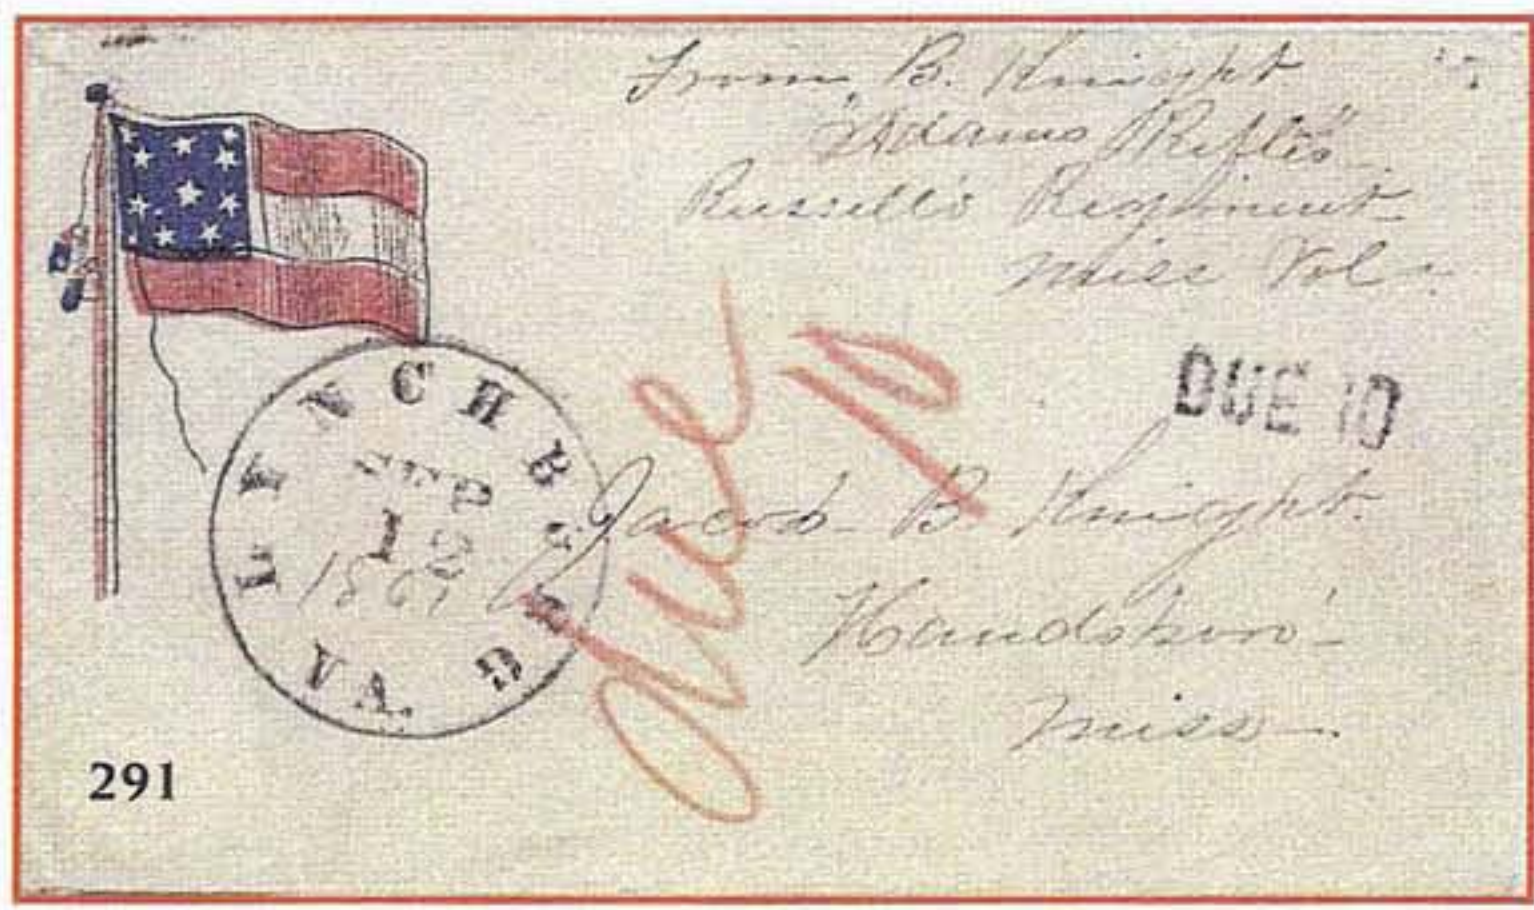 From B. Knight
"Adams Rifles"
Russell's Regiment
Miss Vols.
DUE 10
Due 10
LYNCHBURG
VA.
SEP
12
1861
Jacob B Knight.
Handsboro'
Miss.
291